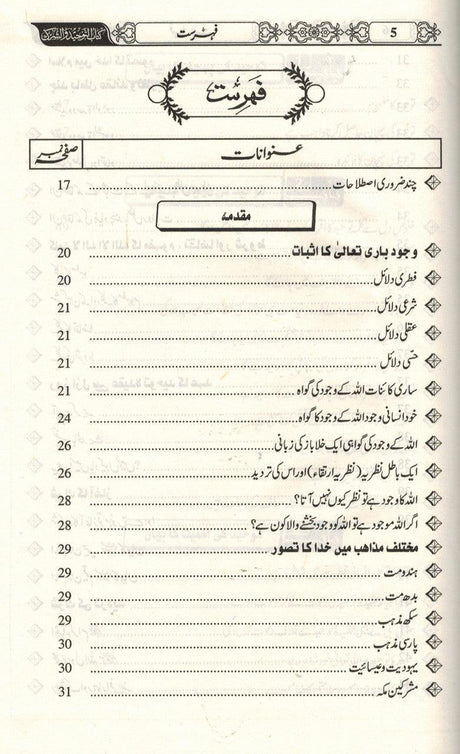 5 فہرست کتاب التوحید والشرک
فہرست
عنوانات صفحہ نمبر
چند ضروری اصطلاحات 17
مقدمہ
وجود باری تعالیٰ کا اثبات 20
فطری دلائل 20
شرعی دلائل 21
عقلی دلائل 21
حسی دلائل 21
ساری کائنات اللہ کے وجود کی گواہ 21
خود انسانی وجود اللہ کے وجود کا گواہ 24
اللہ کے وجود کی گواہی ایک خلاباز کی زبانی 26
ایک باطل نظریہ (نظریہ ارتقاء) اور اس کی تردید 26
اللہ کا وجود ہے تو نظر کیوں نہیں آتا؟ 28
اگر اللہ موجود ہے تو اللہ کو وجود بخشنے والا کون ہے؟ 28
مختلف مذاہب میں خدا کا تصور 29
ہندومت 29
بدھ مت 29
سکھ مذہب 29
پارسی مذہب 30
یہودیت وعیسائیت 30
مشرکین مکہ 31